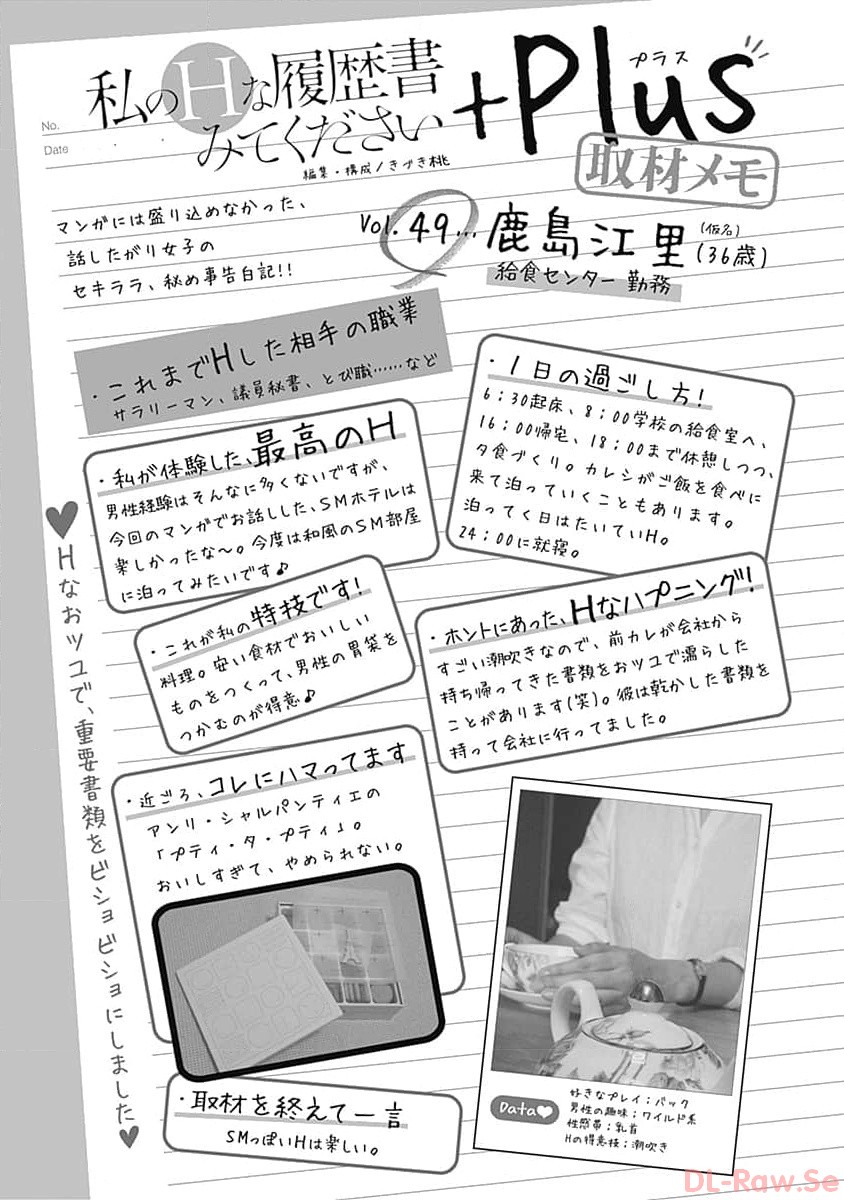 No.
Date
私のHな履歴書
みてください
+Plus
プラス
編集・構成/きづき桃
取材メモ
マンガには盛り込めなかった、
話したがり女子の
セキララ、秘め事告白記!!
Vol.49…鹿島江里
(仮名)
(36歳)
給食センター勤務
・これまでHした相手の職業
サラリーマン、議員秘書、とび職……など
・1日の過ごし方!
6:30起床、8:00学校の給食室へ、
16:00帰宅、18:00まで休憩しつつ、
夕食づくり。カレシがご飯を食べに
来て泊っていくこともあります。
泊ってく日はたいていH。
24:00に就寝。
・私が体験した、最高のH
男性経験はそんなに多くないですが、
今回のマンガでお話しした、SMホテルは
楽しかったな〜。今度は和風のSM部屋
に泊ってみたいです♪
・これが私の特技です!
料理。安い食材でおいしい
ものをつくって、男性の胃袋を
つかむのが得意♪
・ホントにあった、Hなハプニング!
すごい潮吹きなので、前カレが会社から
持ち帰ってきた書類をおツユで濡らした
ことがあります(笑)。彼は乾かした書類を
持って会社に行ってました。
♥Hなおツユで、重要書類をビショビショにしました♥
・近ごろ、コレにハマってます
アンリ・シャルパンティエの
「プティ・タ・プティ」。
おいしすぎて、やめられない。
・取材を終えて一言
SMっぽいHは楽しい。
Data♥
好きなプレイ;バック
男性の趣味;ワイルド系
性感帯;乳首
Hの得意技;潮吹き
DL-Raw.Se